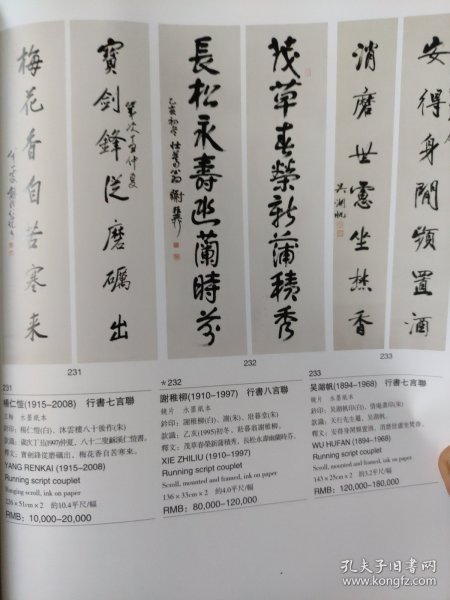 安得身閒頻置酒
消磨世慮坐焚香
吳湖帆
茂草春榮新蒲積秀
長松永壽幽蘭時芬
乙亥初冬 壯暮翁 謝稚柳
寶劍鋒從磨礪出
歲次丁丑仲夏
梅花香自苦寒来
231
232
233
231
楊仁愷(1915-2008) 行書七言聯
立軸 水墨紙本
鈐印:楊仁愷(白)、沐雲樓八十後作(朱)
YANG RENKAI (1915-2008)
Running script couplet
Hanging scroll, ink on paper
226×51cm×2 約10.4平尺/幅
RMB: 10,000-20,000
*232
謝稚柳(1910-1997) 行書八言聯
鏡片 水墨紙本
鈐印:謝稚柳(白)、謝(朱)、壯暮堂(朱)
款識:乙亥(1995)初冬,壯暮翁謝稚柳。
釋文:茂草春榮新蒲積秀,長松永壽幽蘭時芬。
XIE ZHILIU (1910-1997)
Running script couplet
Scroll, mounted and framed, ink on paper
136×33cm×2 約4.0平尺/幅
RMB: 80,000-120,000
233
吴湖帆(1894-1968) 行書七言聯
鏡片 水墨紙本
款識:天行先生屬,吴湖帆。
釋文:安得身閒頻置酒,消磨世慮坐焚香。
WU HUFAN (1894-1968)
Running script couplet
Scroll, mounted and framed, ink on paper
143×25cm×2 約3.2平尺/幅
RMB: 120,000-180,000
孔夫子旧书网
www.kongfz.com